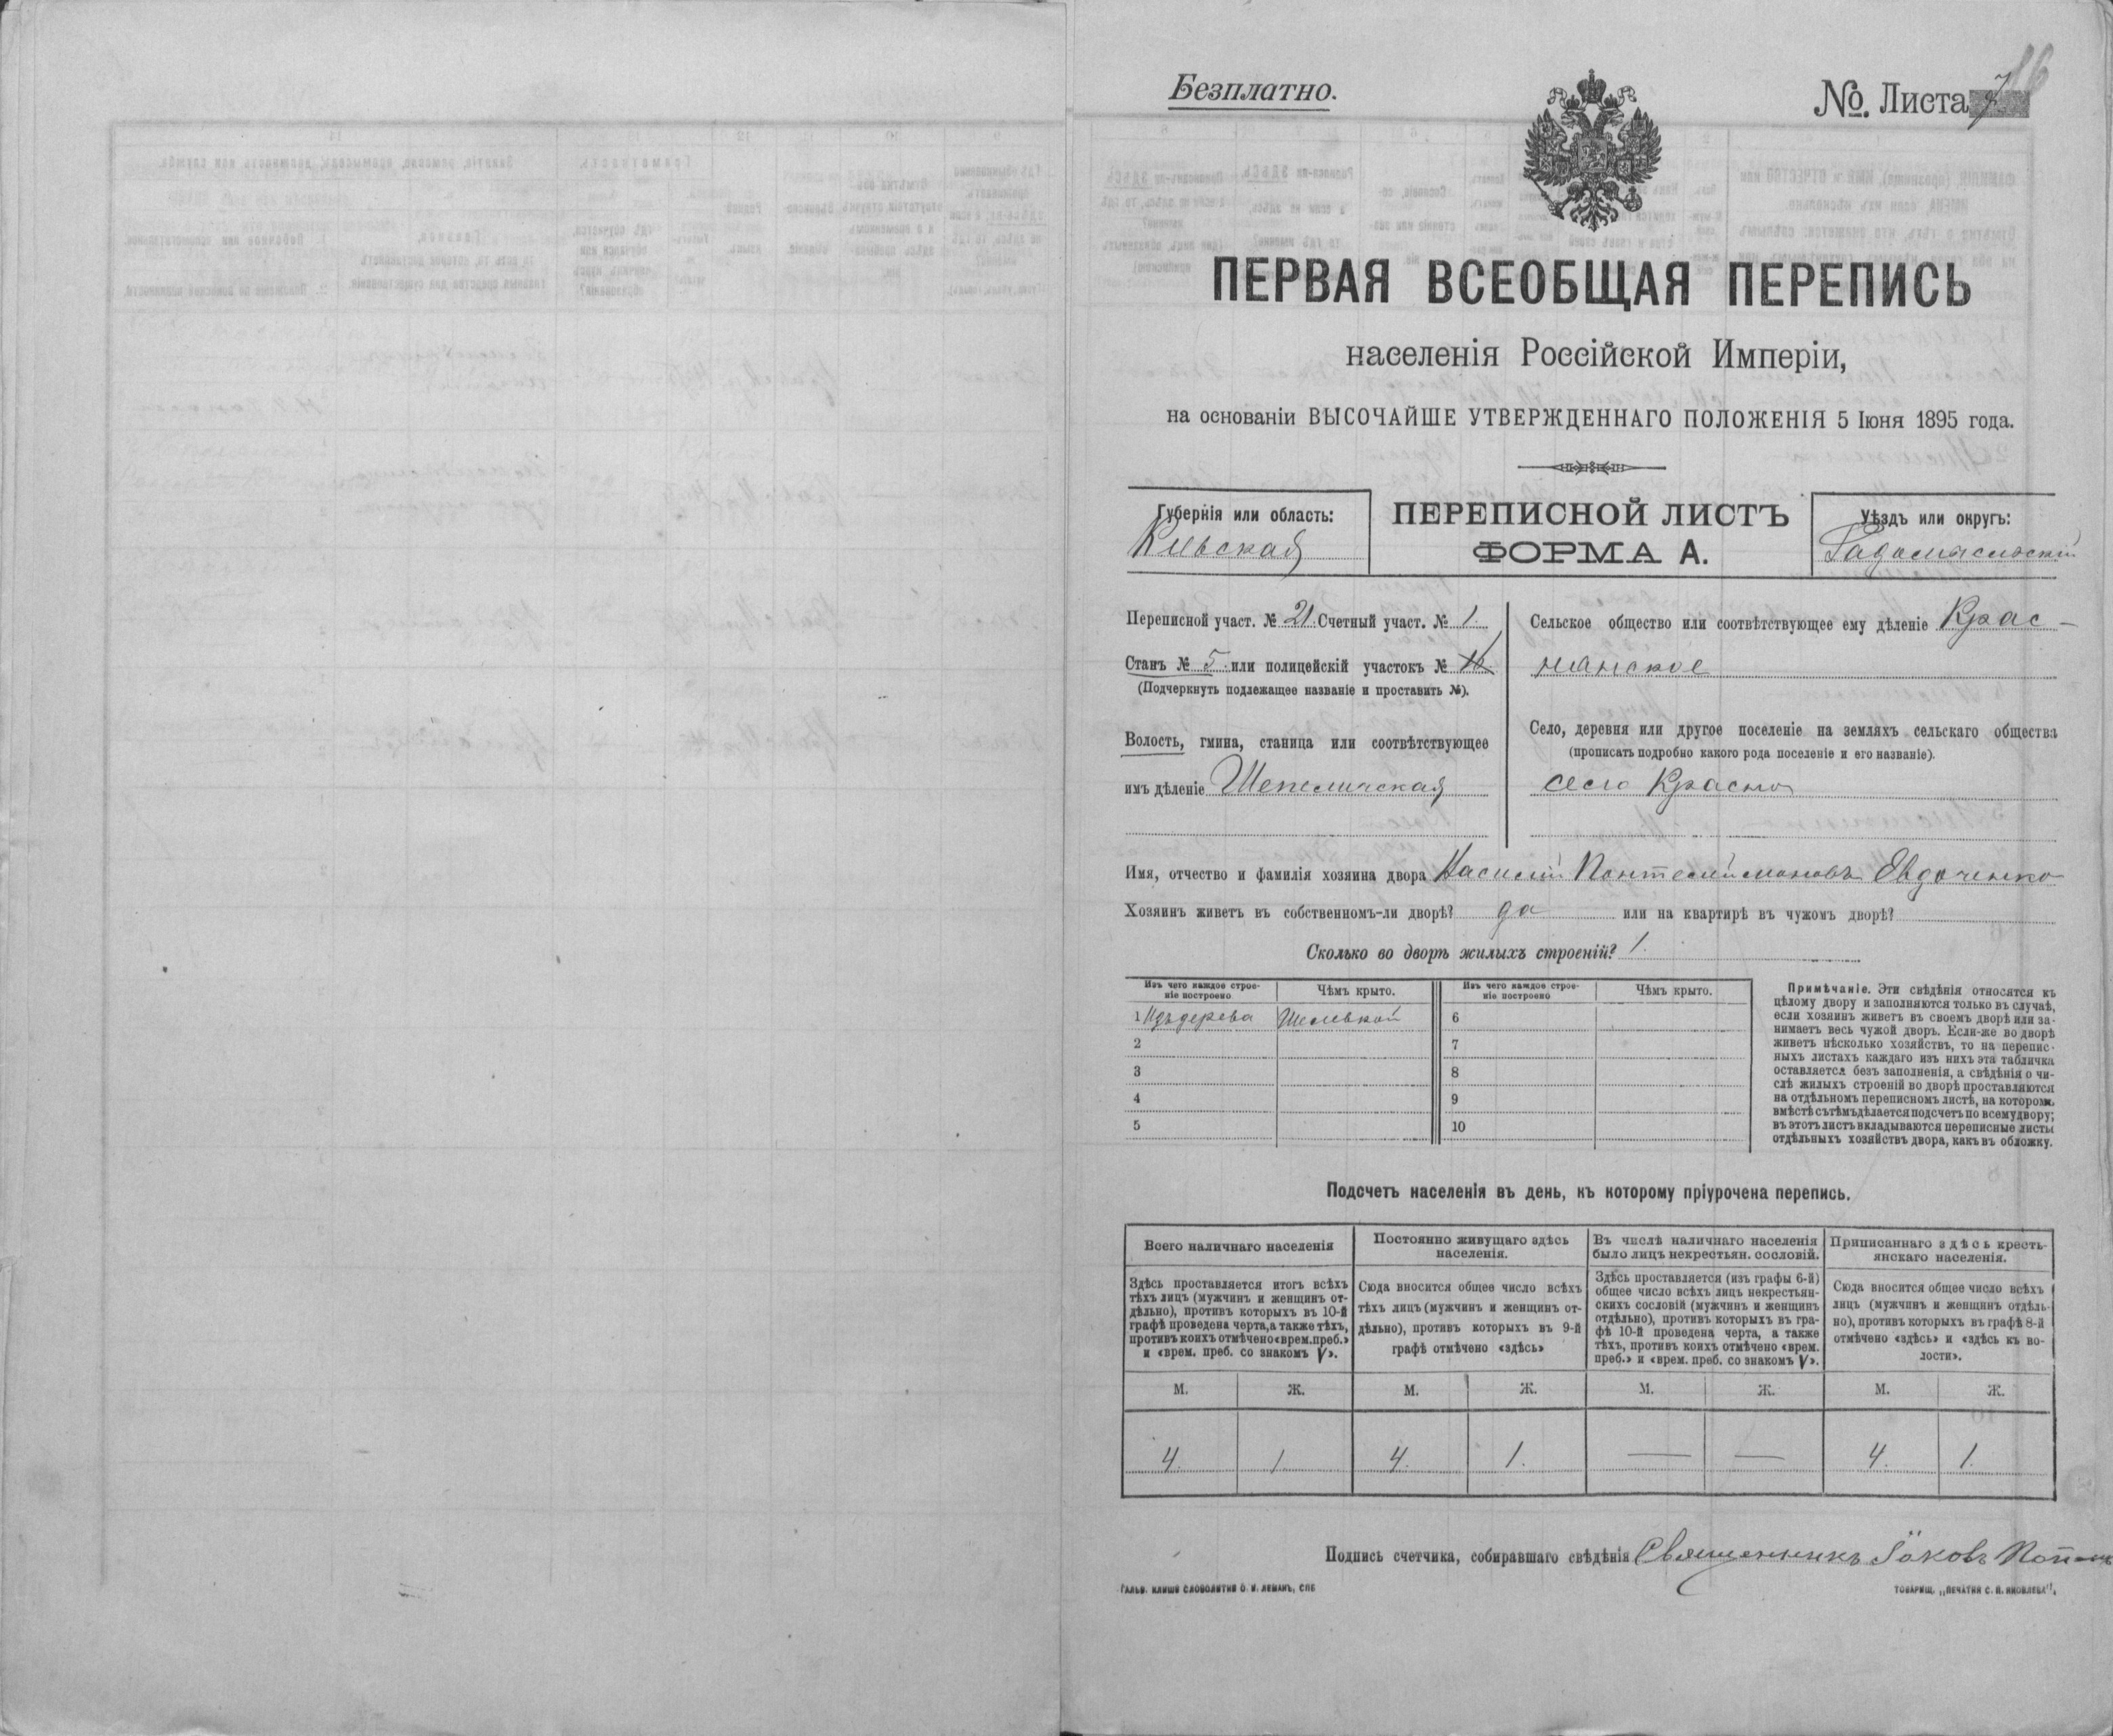 Безплатно.
№. Листа 7
ПЕРВАЯ ВСЕОБЩАЯ ПЕРЕПИСЬ
населенія Россійской Имперіи,
на основаніи ВЫСОЧАЙШЕ УТВЕРЖДЕННАГО ПОЛОЖЕНІЯ 5 Іюня 1895 года.
Губернія или область:
Кіевская
ПЕРЕПИСНОЙ ЛИСТЪ
ФОРМА А.
Уѣздъ или округъ:
Радомысльскій
Переписной участ. № 21. Счетный участ. № 1.
Станъ № 5. или полицейскій участокъ №
(Подчеркнуть подлежащее названіе и проставить №).
Волость, гмина, станица или соотвѣтствующее
имъ дѣленіе Шепеличская
Сельское общество или соотвѣтствующее ему дѣленіе Крас-
нянское
Село, деревня или другое поселеніе на земляхъ сельскаго общества
(прописать подробно какого рода поселеніе и его названіе).
село Красно
Имя, отчество и фамилія хозяина двора Василій Пантелеймоновъ Евдоченко
Хозяинъ живетъ въ собственномъ-ли дворѣ? да или на квартирѣ въ чужомъ дворѣ?
Сколько во дворѣ жилыхъ строеній? 1.
Изъ чего каждое строе-
ніе построено
Чѣмъ крыто.
Изъ чего каждое строе-
ніе построено
Чѣмъ крыто.
1 Изъ дерева Шелевкой 6
2 7
3 8
4 9
5 10
Примѣчаніе. Эти свѣдѣнія относятся къ
цѣлому двору и заполняются только въ случаѣ,
если хозяинъ живетъ въ своемъ дворѣ или за-
нимаетъ весь чужой дворъ. Если-же во дворѣ
живетъ нѣсколько хозяйствъ, то на перепис-
ныхъ листахъ каждаго изъ нихъ эта табличка
оставляется безъ заполненія, а свѣдѣнія о чи-
слѣ жилыхъ строеній во дворѣ проставляются
на отдѣльномъ переписномъ листѣ, на которомъ
вмѣстѣ съ тѣмъ дѣлается подсчетъ по всему двору;
въ этотъ листъ вкладываются переписные листы
отдѣльныхъ хозяйствъ двора, какъ въ обложку.
Подсчетъ населенія въ день, къ которому пріурочена перепись.
Всего наличнаго населенія
Здѣсь проставляется итогъ всѣхъ
тѣхъ лицъ (мужчинъ и женщинъ от-
дѣльно), противъ которыхъ въ 10-й
графѣ проведена черта, а также тѣхъ,
противъ коихъ отмѣчено «врем. преб.»
и «врем. преб. со знакомъ V».
Постоянно живущаго здѣсь
населенія.
Сюда вносится общее число всѣхъ
тѣхъ лицъ (мужчинъ и женщинъ от-
дѣльно), противъ которыхъ въ 9-й
графѣ отмѣчено «здѣсь»
Въ числѣ наличнаго населенія
было лицъ некрестьян. сословій.
Здѣсь проставляется (изъ графы 6-й)
общее число всѣхъ лицъ некрестьян-
скихъ сословій (мужчинъ и женщинъ
отдѣльно), противъ которыхъ въ гра-
фѣ 10-й проведена черта, а также
тѣхъ, противъ коихъ отмѣчено «врем.
преб.» и «врем. преб. со знакомъ V».
Приписаннаго здѣсь кресть-
янскаго населенія.
Сюда вносится общее число всѣхъ
лицъ (мужчинъ и женщинъ отдѣль-
но), противъ которыхъ въ графѣ 8-й
отмѣчено «здѣсь» и «здѣсь къ во-
лости».
М. Ж. М. Ж. М. Ж. М. Ж.
4. 1 4. 1. — — 4. 1.
Подпись счетчика, собиравшаго свѣдѣнія Священникъ Іаковъ
ГАЛЬВ. КЛИШЕ СЛОВОЛИТНИ О. И. ЛЕМАНЪ, СПБ
ТОВАРИЩ. „ПЕЧАТНЯ С. П. ЯКОВЛЕВА“.